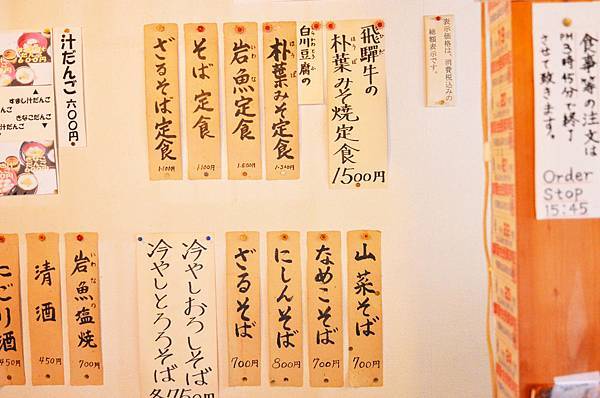 食事等の注文は
PM3時45分で終了
させて頂きます。
Order
Stop
15:45
表示価格は、消費税込みの
総額表示です。
飛騨牛の
朴葉みそ焼定食
1500円
白川豆腐の
朴葉みそ定食
岩魚定食
そば定食
1,100円
ざるそば定食
1,100円
汁だんご 六〇〇円
山菜そば
700円
なめこそば
700円
にしんそば
800円
ざるそば
700円
冷やしおろしそば
冷やしとろろそば
各750円
岩魚塩焼
700円
清酒
450円
にごり酒
450円